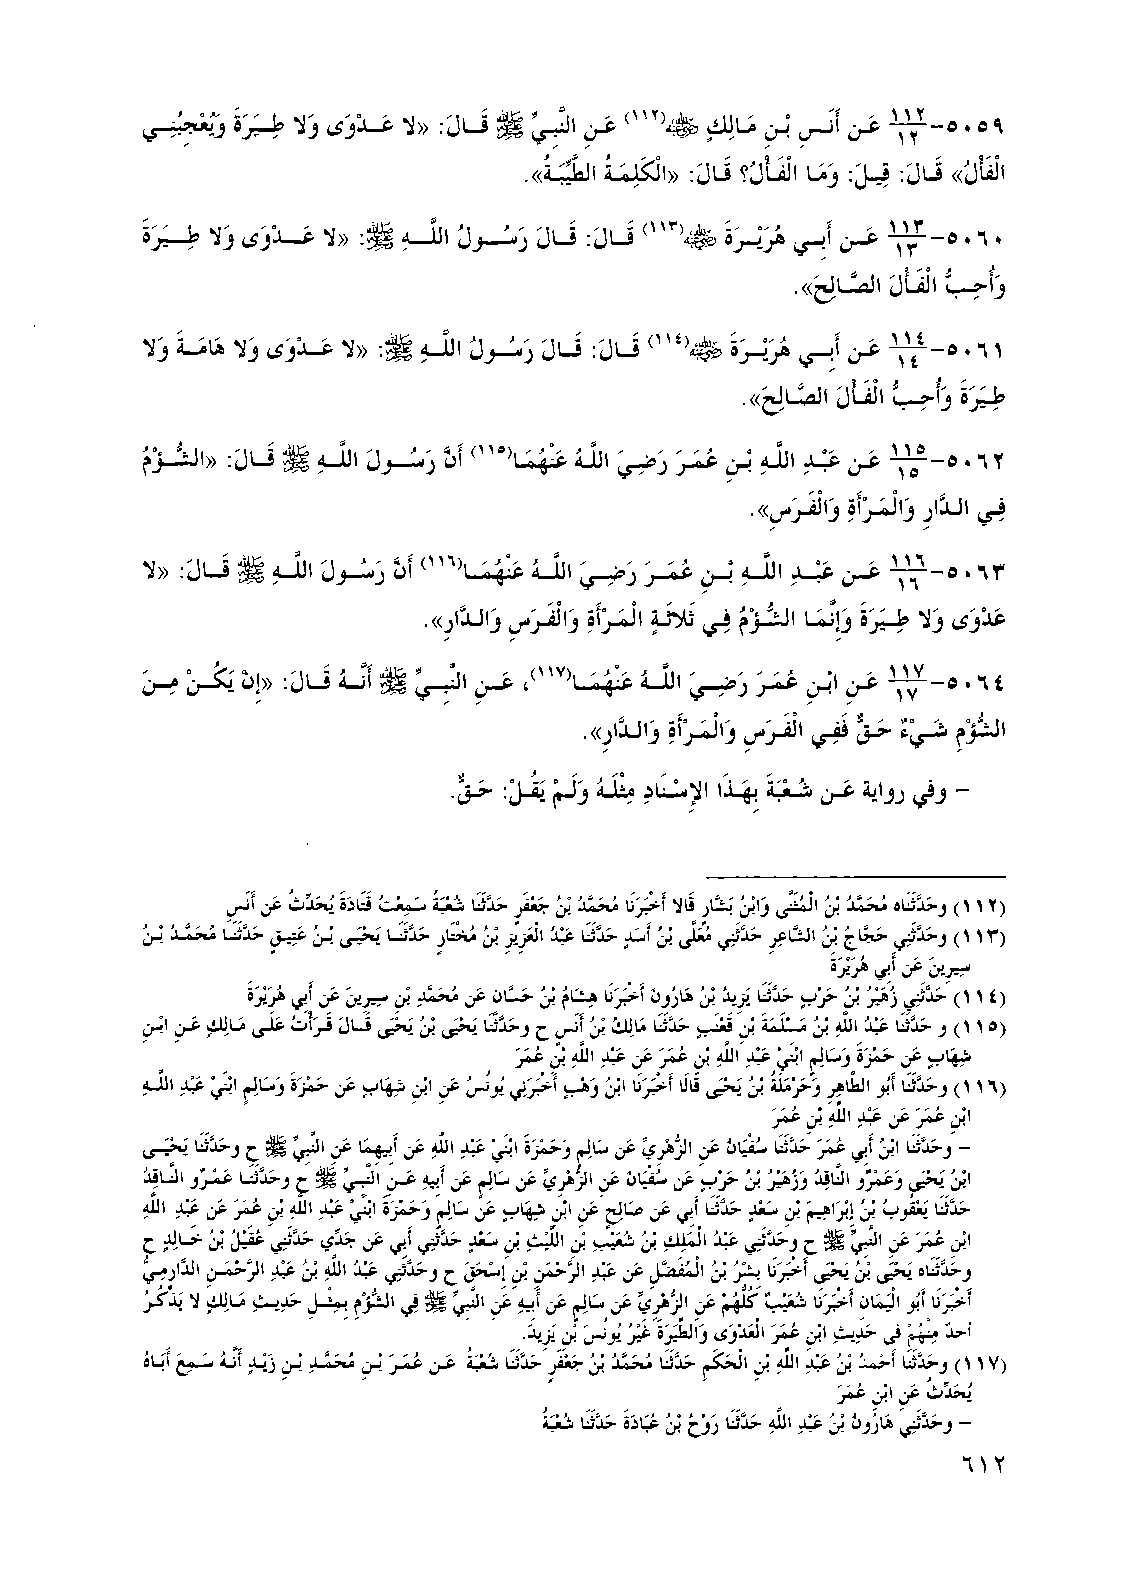 ٥٠٥٩-١١٢/١٢ عَن أَنَسِ بْنِ مَالِكٍ ﵁(١١٢) عَنِ النَّبِيِّ ﷺ قَالَ: «لا عَدْوَى وَلا طِيَرَةَ وَيُعْجِبُنِي
الْفَأْلُ» قَالَ: قِيلَ: وَمَا الْفَأْلُ؟ قَالَ: «الْكَلِمَةُ الطَّيِّبَةُ».
٥٠٦٠-١١٣/١٣ عَن أَبِي هُرَيْرَةَ ﵁(١١٣) قَالَ: قَالَ رَسُولُ اللَّهِ ﷺ: «لا عَدْوَى وَلا طِيَرَةَ
وَأُحِبُّ الْفَأْلَ الصَّالِحَ».
٥٠٦١-١١٤/١٤ عَن أَبِي هُرَيْرَةَ ﵁(١١٤) قَالَ: قَالَ رَسُولُ اللَّهِ ﷺ: «لا عَدْوَى وَلا هَامَةَ وَلا
طِيَرَةَ وَأُحِبُّ الْفَأْلَ الصَّالِحَ».
٥٠٦٢-١١٥/١٥ عَن عَبْدِ اللَّهِ بْنِ عُمَرَ رَضِيَ اللَّهُ عَنْهُمَا(١١٥) أَنَّ رَسُولَ اللَّهِ ﷺ قَالَ: «الشُّؤْمُ
فِي الدَّارِ وَالْمَرْأَةِ وَالْفَرَسِ».
٥٠٦٣-١١٦/١٦ عَن عَبْدِ اللَّهِ بْنِ عُمَرَ رَضِيَ اللَّهُ عَنْهُمَا(١١٦) أَنَّ رَسُولَ اللَّهِ ﷺ قَالَ: «لا
عَدْوَى وَلا طِيَرَةَ وَإِنَّمَا الشُّؤْمُ فِي ثَلاثَةٍ الْمَرْأَةِ وَالْفَرَسِ وَالدَّارِ».
٥٠٦٤-١١٧/١٧ عَنِ ابْنِ عُمَرَ رَضِيَ اللَّهُ عَنْهُمَا(١١٧)، عَنِ النَّبِيِّ ﷺ أَنَّهُ قَالَ: «إِنْ يَكُنْ مِنَ
الشُّؤْمِ شَيْءٌ حَقٌّ فَفِي الْفَرَسِ وَالْمَرْأَةِ وَالدَّارِ».
– وفي رواية عَن شُعْبَةَ بِهَذَا الإِسْنَادِ مِثْلَهُ وَلَمْ يَقُلْ: حَقٌّ.
(١١٢) وحَدَّثَنَاه مُحَمَّدُ بْنُ الْمُثَنَّى وَابْنُ بَشَّارٍ قَالا أَخْبَرَنَا مُحَمَّدُ بْنُ جَعْفَرٍ حَدَّثَنَا شُعْبَةُ سَمِعْتُ قَتَادَةَ يُحَدِّثُ عَن أَنَسٍ
(١١٣) وحَدَّثَنِي حَجَّاجُ بْنُ الشَّاعِرِ حَدَّثَنِي مُعَلَّى بْنُ أَسَدٍ حَدَّثَنَا عَبْدُ الْعَزِيزِ بْنُ مُخْتَارٍ حَدَّثَنَا يَحْيَى بْنُ عَتِيقٍ حَدَّثَنَا مُحَمَّدُ بْنُ
سِيرِينَ عَن أَبِي هُرَيْرَةَ
(١١٤) حَدَّثَنِي زُهَيْرُ بْنُ حَرْبٍ حَدَّثَنَا يَزِيدُ بْنُ هَارُونَ أَخْبَرَنَا هِشَامُ بْنُ حَسَّانَ عَن مُحَمَّدِ بْنِ سِيرِينَ عَن أَبِي هُرَيْرَةَ
(١١٥) و حَدَّثَنَا عَبْدُ اللَّهِ بْنُ مَسْلَمَةَ بْنِ قَعْنَبٍ حَدَّثَنَا مَالِكُ بْنُ أَنَسٍ ح وحَدَّثَنَا يَحْيَى بْنُ يَحْيَى قَالَ قَرَأْتُ عَلَى مَالِكٍ عَنِ ابْنِ
شِهَابٍ عَن حَمْزَةَ وَسَالِمٍ ابْنَيْ عَبْدِ اللَّهِ بْنِ عُمَرَ عَن عَبْدِ اللَّهِ بْنِ عُمَرَ
(١١٦) وحَدَّثَنَا أَبُو الطَّاهِرِ وَحَرْمَلَةُ بْنُ يَحْيَى قَالَا أَخْبَرَنَا ابْنُ وَهْبٍ أَخْبَرَنِي يُونُسُ عَنِ ابْنِ شِهَابٍ عَن حَمْزَةَ وَسَالِمٍ ابْنَيْ عَبْدِ اللَّهِ
ابْنِ عُمَرَ عَن عَبْدِ اللَّهِ بْنِ عُمَرَ
– وحَدَّثَنَا ابْنُ أَبِي عُمَرَ حَدَّثَنَا سُفْيَانُ عَنِ الزُّهْرِيِّ عَن سَالِمٍ وَحَمْزَةَ ابْنَيْ عَبْدِ اللَّهِ عَن أَبِيهِمَا عَنِ النَّبِيِّ ﷺ ح وحَدَّثَنَا يَحْيَى
ابْنُ يَحْيَى وَعَمْرٌو النَّاقِدُ وَزُهَيْرُ بْنُ حَرْبٍ عَن سُفْيَانَ عَنِ الزُّهْرِيِّ عَن سَالِمٍ عَن أَبِيهِ عَنِ النَّبِيِّ ﷺ ح وحَدَّثَنَا عَمْرٌو النَّاقِدُ
حَدَّثَنَا يَعْقُوبُ بْنُ إِبْرَاهِيمَ بْنِ سَعْدٍ حَدَّثَنَا أَبِي عَن صَالِحٍ عَنِ ابْنِ شِهَابٍ عَن سَالِمٍ وَحَمْزَةَ ابْنَيْ عَبْدِ اللَّهِ بْنِ عُمَرَ عَن عَبْدِ اللَّهِ
ابْنِ عُمَرَ عَنِ النَّبِيِّ ﷺ ح وحَدَّثَنِي عَبْدُ الْمَلِكِ بْنُ شُعَيْبِ بْنِ اللَّيْثِ بْنِ سَعْدٍ حَدَّثَنِي أَبِي عَن جَدِّي حَدَّثَنِي عُقَيْلُ بْنُ خَالِدٍ ح
وحَدَّثَنَاه يَحْيَى بْنُ يَحْيَى أَخْبَرَنَا بِشْرُ بْنُ الْمُفَضَّلِ عَن عَبْدِ الرَّحْمَنِ بْنِ إِسْحَقَ ح وحَدَّثَنِي عَبْدُ اللَّهِ بْنُ عَبْدِ الرَّحْمَنِ الدَّارِمِيُّ
أَخْبَرَنَا أَبُو الْيَمَانِ أَخْبَرَنَا شُعَيْبٌ كُلُّهُمْ عَنِ الزُّهْرِيِّ عَن سَالِمٍ عَن أَبِيهِ عَنِ النَّبِيِّ ﷺ فِي الشُّؤْمِ بِمِثْلِ حَدِيثِ مَالِكٍ لا يَذْكُرُ
أَحَدٌ مِنْهُمْ فِي حَدِيثِ ابْنِ عُمَرَ الْعَدْوَى وَالطِّيَرَةَ غَيْرُ يُونُسَ بْنِ يَزِيدَ.
(١١٧) وحَدَّثَنَا أَحْمَدُ بْنُ عَبْدِ اللَّهِ بْنِ الْحَكَمِ حَدَّثَنَا مُحَمَّدُ بْنُ جَعْفَرٍ حَدَّثَنَا شُعْبَةُ عَن عُمَرَ بْنِ مُحَمَّدِ بْنِ زَيْدٍ أَنَّهُ سَمِعَ أَبَاهُ
يُحَدِّثُ عَنِ ابْنِ عُمَرَ
– وحَدَّثَنِي هَارُونُ بْنُ عَبْدِ اللَّهِ حَدَّثَنَا رَوْحُ بْنُ عُبَادَةَ حَدَّثَنَا شُعْبَةُ
٦١٢